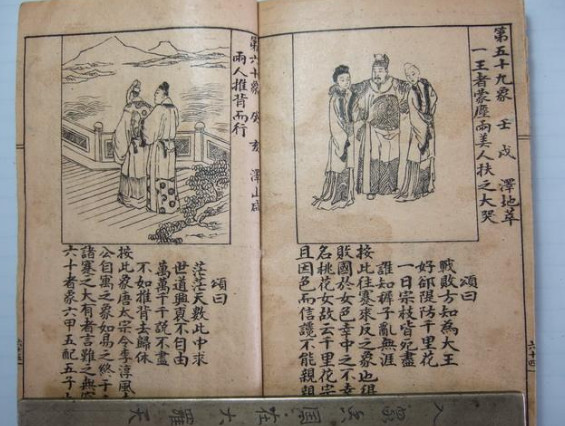 第五十九象 壬戌 澤地萃
一王者蒙塵兩美人扶之大哭
頌曰
戰敗方知為大王
好卻隄防千里花
一日宗枝皆死盡
誰知褲子亂無涯
按此往蹇來反之象也
敗國於女色幸中之不幸
名桃花女故云千里花宗
且因色而信讒不能親
六十四
第六十象 癸亥 澤山咸
兩人推背而行
頌曰
茫茫天數此中求
世道興衰不自由
萬萬千千說不盡
不如推背去歸休
按此象唐太宗令李淳風
公自寓之象如易之終于
諸蹇之大有者言難之無
六十者象六甲五配五子
在大羅天